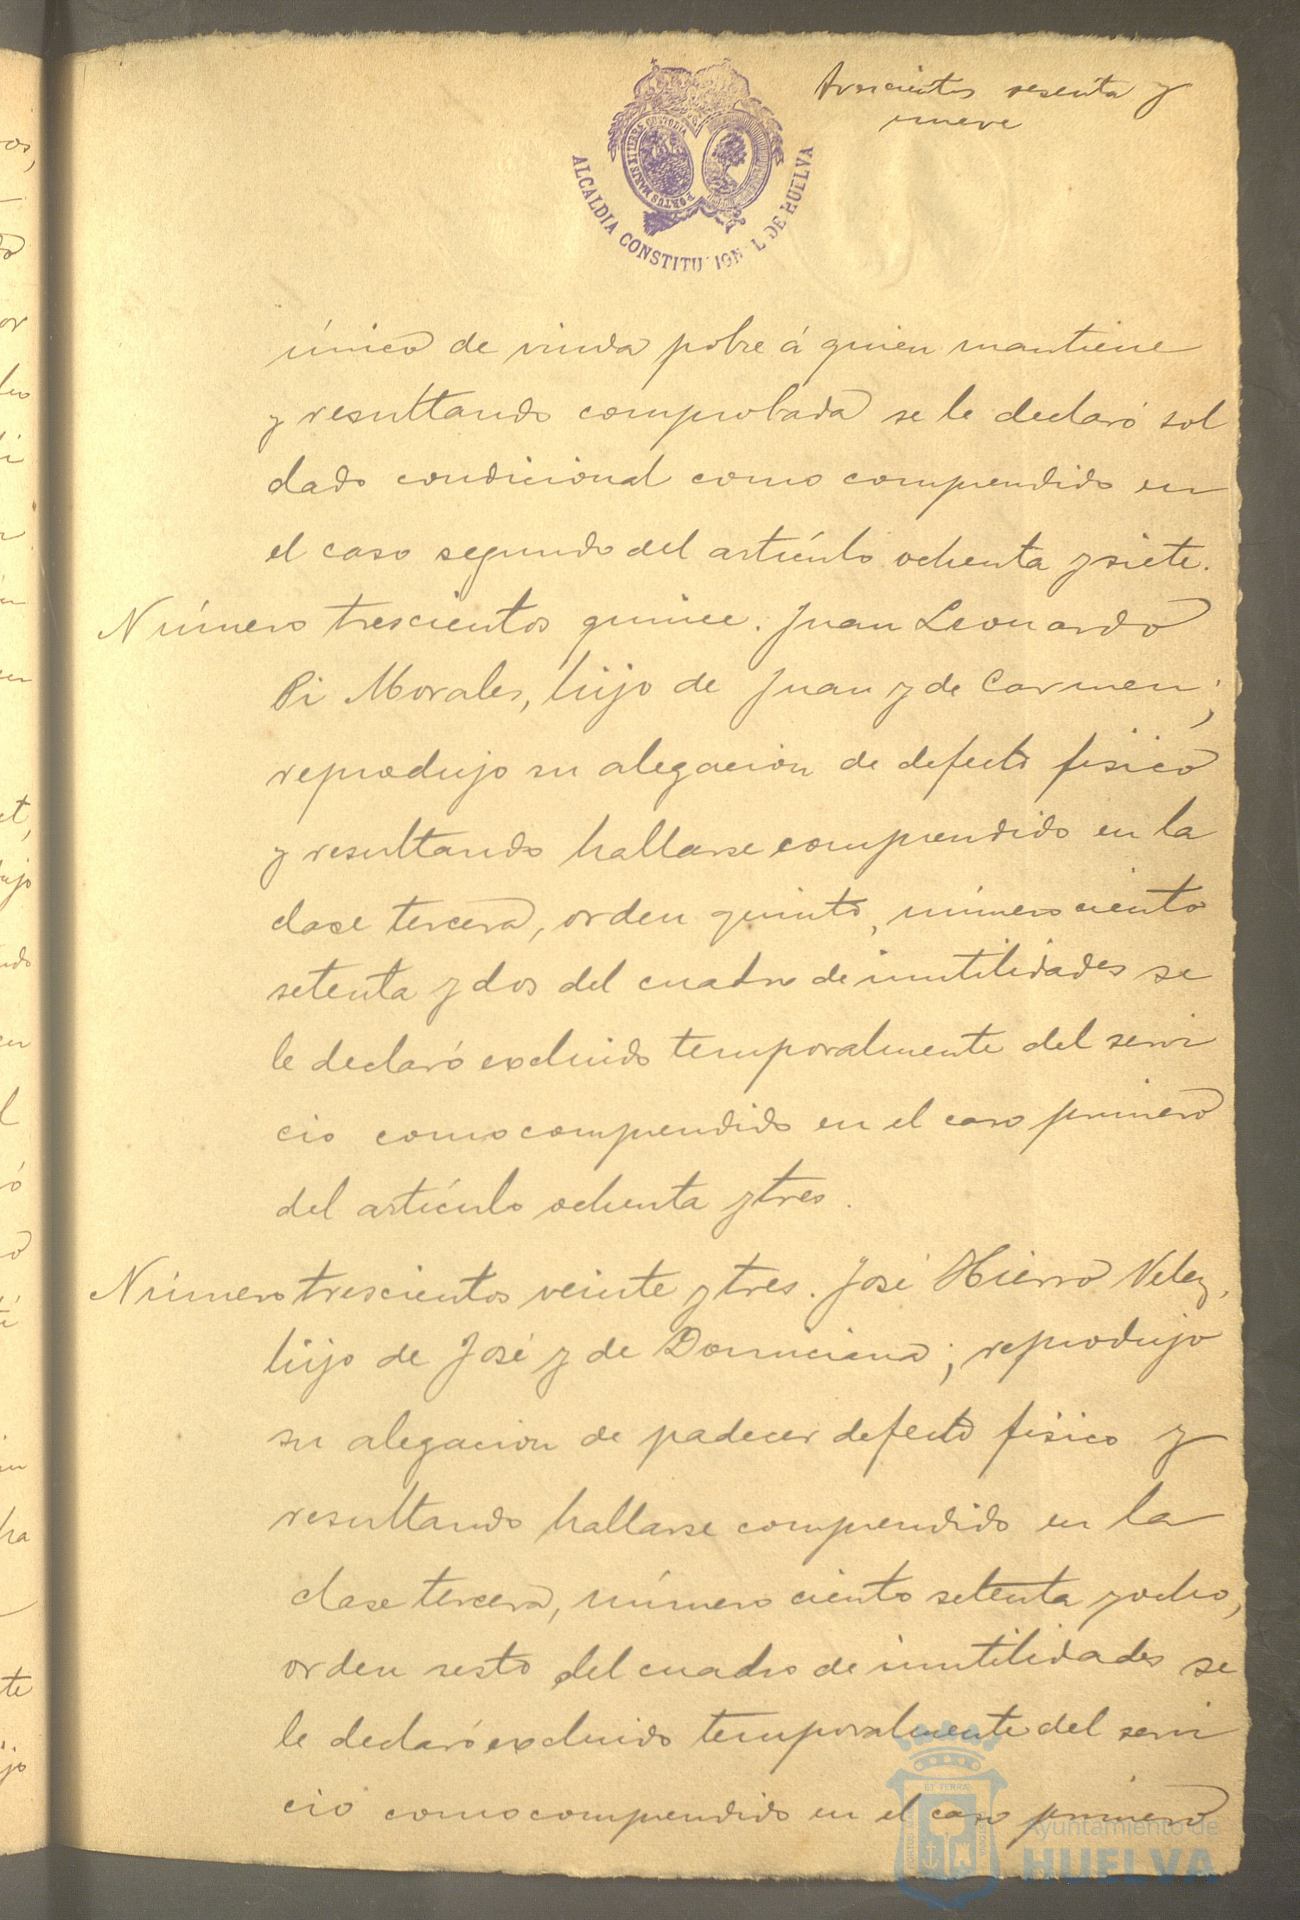 trescientos sesenta y
nueve
PORTUS MARIS ET TERRE CUSTODIA
ALCALDIA CONSTITU IGN L DE HUELVA
único de viuda pobre á quien mantiene
y resultando comprobada se le declaró sol
dado condicional como comprendido en
el caso segundo del artículo ochenta y siete.
Número trescientos quince. Juan Leonardo
Pi Morales, hijo de Juan y de Carmen;
reprodujo su alegación de defecto físico
y resultando hallarse comprendido en la
clase tercera, orden quinto, número ciento
setenta y dos del cuadro de inutilidades se
le declaró excluido temporalmente del servi
cio como comprendido en el caso primero
del artículo ochenta y tres.
Número trescientos veinte y tres. José Hierro Velez,
hijo de José y de Domiciana; reprodujo
su alegacion de padecer defecto físico y
resultando hallarse comprendido en la
clase tercera, número ciento setenta y ocho,
orden sesto del cuadro de inutilidades se
le declaró excluido temporalmente del servi
cio como comprendido en el caso primero
Ayuntamiento de
HUELVA